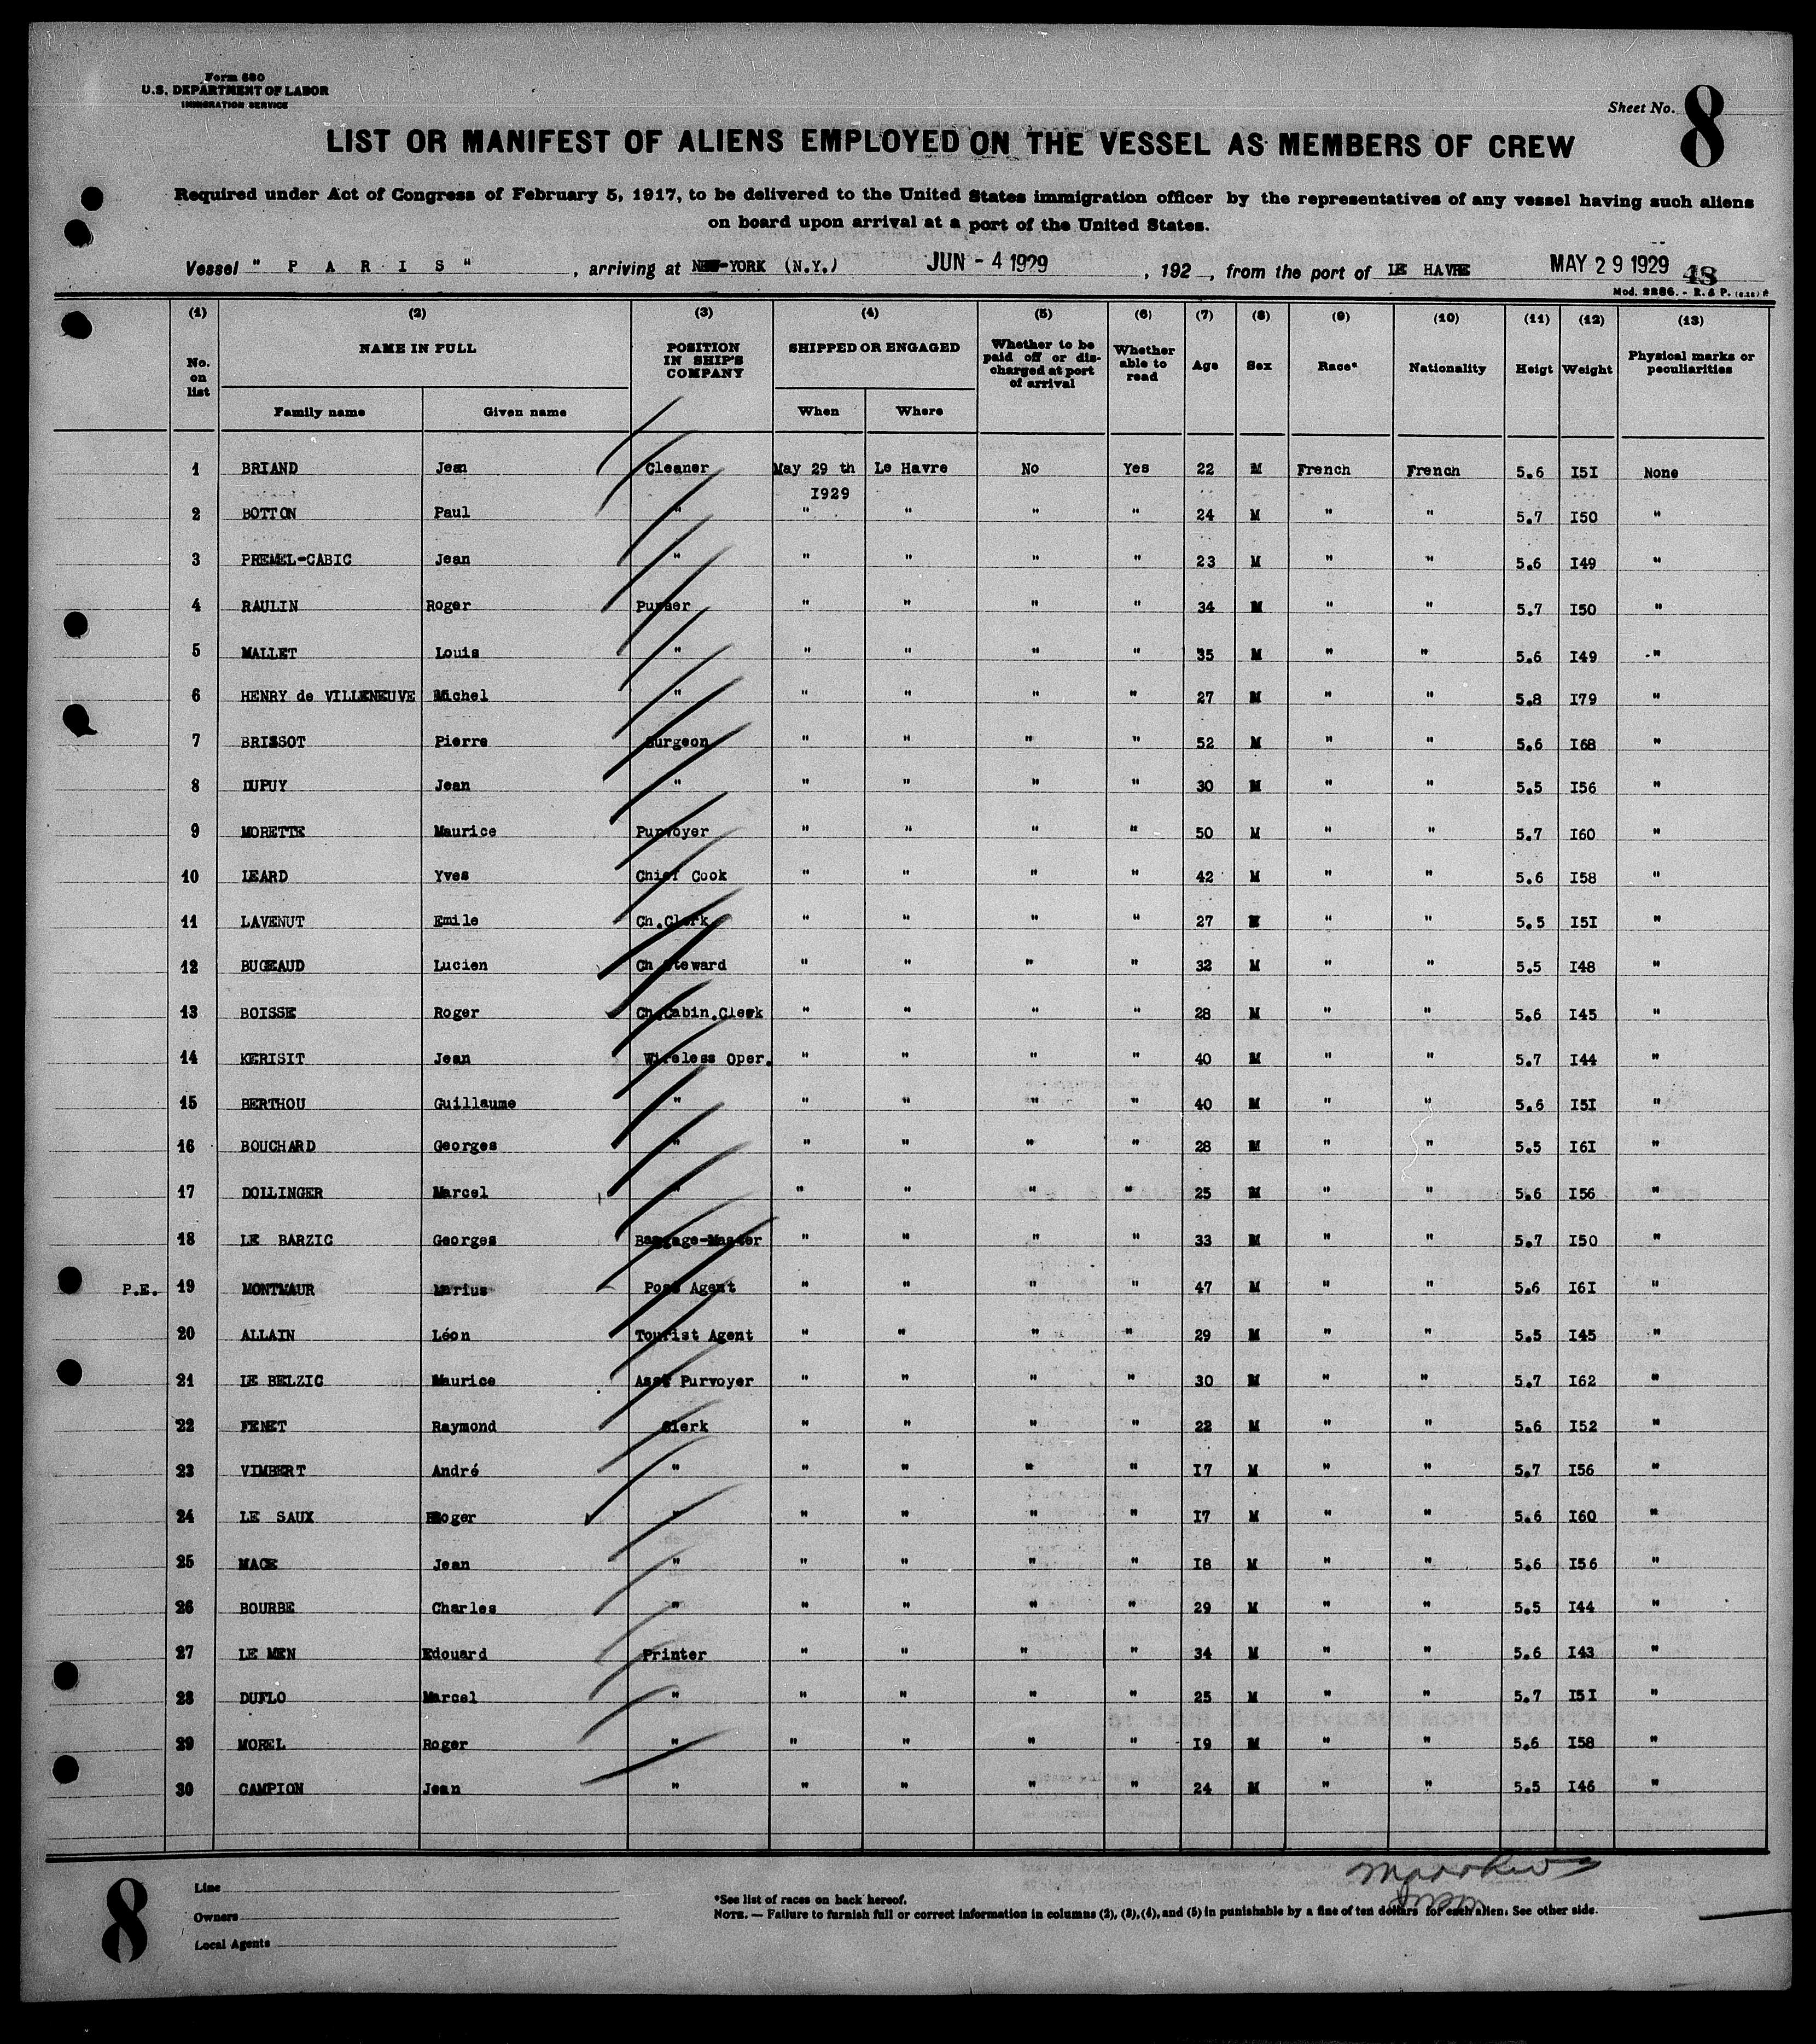 Form 680
U.S. DEPARTMENT OF LABOR
IMMIGRATION SERVICE
Sheet No. 8
LIST OR MANIFEST OF ALIENS EMPLOYED ON THE VESSEL AS MEMBERS OF CREW
Required under Act of Congress of February 5, 1917, to be delivered to the United States immigration officer by the representatives of any vessel having such aliens
on board upon arrival at a port of the United States.
Vessel " P A R I S " , arriving at NEW-YORK (N.Y.) JUN - 4 1929 , 192 , from the port of LE HAVRE MAY 29 1929 48
Mod. 2286. - R. & P. (6.28)
(1) (2) (3) (4) (5) (6) (7) (8) (9) (10) (11) (12) (13)
No. on list NAME IN FULL POSITION IN SHIP'S COMPANY SHIPPED OR ENGAGED Whether to be paid off or discharged at port of arrival Whether able to read Age Sex Race* Nationality Heigt Weight Physical marks or peculiarities
Family name Given name When Where
1 BRIAND Jean Cleaner May 29 th Le Havre No Yes 22 M French French 5.6 I5I None
1929
2 BOTTON Paul " " " " " 24 M " " 5.7 I50 "
3 PREMEL-CABIC Jean " " " " " 23 M " " 5.6 I49 "
4 RAULIN Roger Purser " " " " 34 M " " 5.7 I50 "
5 MALLET Louis " " " " " 35 M " " 5.6 I49 "
6 HENRY de VILLENEUVE Michel " " " " " 27 M " " 5.8 I79 "
7 BRISSOT Pierre Surgeon " " " " 52 M " " 5.6 I68 "
8 DUPUY Jean " " " " " 30 M " " 5.5 I56 "
9 MORETTE Maurice Purvoyer " " " " 50 M " " 5.7 I60 "
10 LEARD Yves Chief Cook " " " " 42 M " " 5.6 I58 "
11 LAVENUT Emile Ch.Clerk " " " " 27 M " " 5.5 I5I "
12 BUGEAUD Lucien Ch Steward " " " " 32 M " " 5.5 I48 "
13 BOISSE Roger Ch.Cabin.Clerk " " " " 28 M " " 5.6 I45 "
14 KERISIT Jean Wireless Oper. " " " " 40 M " " 5.7 I44 "
15 BERTHOU Guillaume " " " " " 40 M " " 5.6 I5I "
16 BOUCHARD Georges " " " " " 28 M " " 5.5 I6I "
17 DOLLINGER Marcel " " " " " 25 M " " 5.6 I56 "
18 LE BARZIC Georges Baggage-Master " " " " 33 M " " 5.7 I50 "
P.E. 19 MONTMAUR Marius Post Agent " " " " 47 M " " 5.6 I6I "
20 ALLAIN Léon Tourist Agent " " " " 29 M " " 5.5 I45 "
21 LE BELZIC Maurice Asst Purvoyer " " " " 30 M " " 5.7 I62 "
22 FENET Raymond Clerk " " " " 22 M " " 5.6 I52 "
23 VIMBERT André " " " " " I7 M " " 5.7 I56 "
24 LE SAUX Roger " " " " " I7 M " " 5.6 I60 "
25 MACE Jean " " " " " I8 M " " 5.6 I56 "
26 BOURBE Charles " " " " " 29 M " " 5.5 I44 "
27 LE MEN Edouard Printer " " " " 34 M " " 5.6 I43 "
28 DUFLO Marcel " " " " " 25 M " " 5.7 I5I "
29 MOREL Roger " " " " " I9 M " " 5.6 I58 "
30 CAMPION Jean " " " " " 24 M " " 5.5 I46 "
8
Line
Owners
Local Agents
*See list of races on back hereof.
NOTE. — Failure to furnish full or correct information in columns (2), (3), (4), and (5) in punishable by a fine of ten dollars for each alien. See other side.